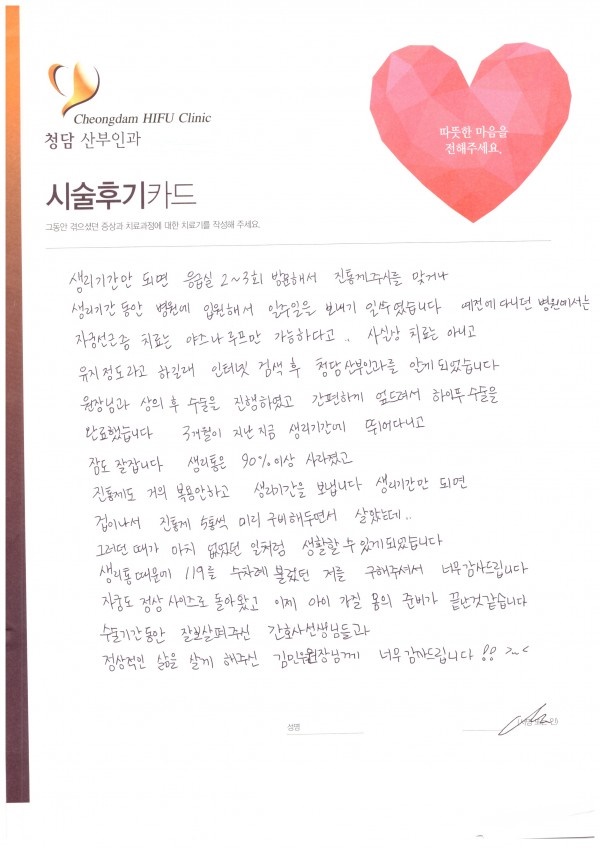 Cheongdam HIFU Clinic
청담 산부인과
따뜻한 마음을
전해주세요.
시술후기카드
그동안 겪으셨던 증상과 치료과정에 대한 치료기를 작성해 주세요.
생리기간만 되면 응급실 2~3회 방문해서 진통제주사를 맞거나
생리기간 동안 병원에 입원해서 일주일을 보내기 일쑤였습니다 예전에 다니던 병원에서는
자궁선근증 치료는 야즈나 루프만 가능하다고.. 사실상 치료는 아니고
유지정도라고 하길래 인터넷 검색 후 청담산부인과를 알게 되었습니다
원장님과 상의 후 수술을 진행하였고 간편하게 엎드려서 하이푸 수술을
완료했습니다 3개월이 지난 지금 생리기간에 뛰어다니고
잠도 잘잡니다 생리통은 90%이상 사라졌고
진통제도 거의 복용안하고 생리기간을 보냅니다 생리기간만 되면
겁이나서 진통제 수통씩 미리 구비해두면서 살았는데..
그러던 때가 마치 없었던 일처럼 생활할 수 있게 되었습니다
생리통 때문에 119를 수차례 불렀던 저를 구해주셔서 너무 감사드립니다
자궁도 정상 사이즈로 돌아왔고 이제 아이 가질 몸의 준비가 끝난것 같습니다
수술기간동안 잘보살펴주신 간호사선생님들과
정상적인 삶을 살게 해주신 김민우원장님께 너무 감사드립니다 !! >~<
성명